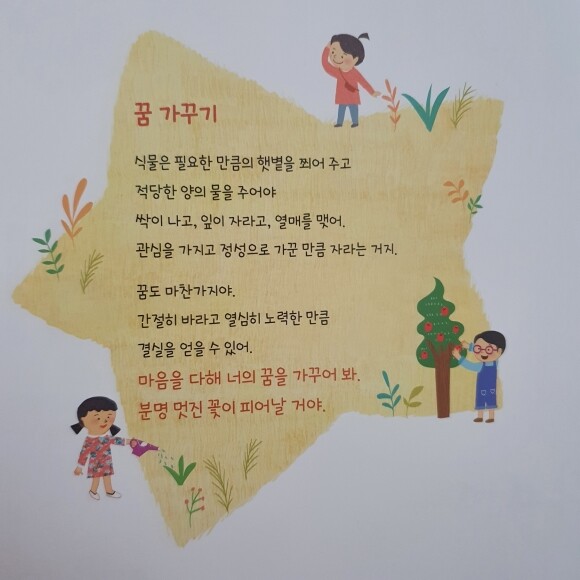 꿈 가꾸기
식물은 필요한 만큼의 햇볕을 쬐어 주고
적당한 양의 물을 주어야
싹이 나고, 잎이 자라고, 열매를 맺어.
관심을 가지고 정성으로 가꾼 만큼 자라는 거지.
꿈도 마찬가지야.
간절히 바라고 열심히 노력한 만큼
결실을 얻을 수 있어.
마음을 다해 너의 꿈을 가꾸어 봐.
분명 멋진 꽃이 피어날 거야.